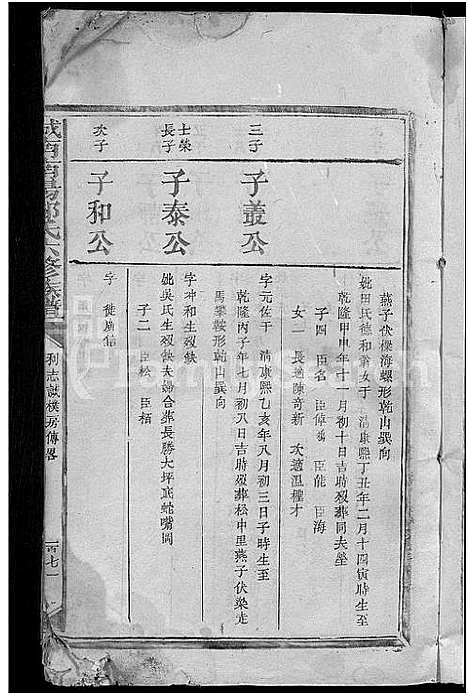 燕子伏樑海螺形乾山巽向
妣田氏德和翁女于 清康熙丁丑年二月十四寅時生至
乾隆甲申年十一月初十日吉時歿葬同夫塋
子四 臣名 臣倬 臣能 臣海
女一 長適陳奇新 次適溫權才
三子
子叢公
字元佐于 清康熙乙亥年八月初三日子時生至
乾隆丙子年七月初八日吉時歿葬松中里燕子伏樑走
馬攀鞍形乾山巽向
士榮
長子
子泰公
字冲和生歿缺
妣吳氏生歿缺夫婦合葬長勝大坪底蛇嘴岡
子二 臣松 臣栢
次子
子和公
字 徙廣信
氏六修族譜
利志誠樸房傳畧
一百七一